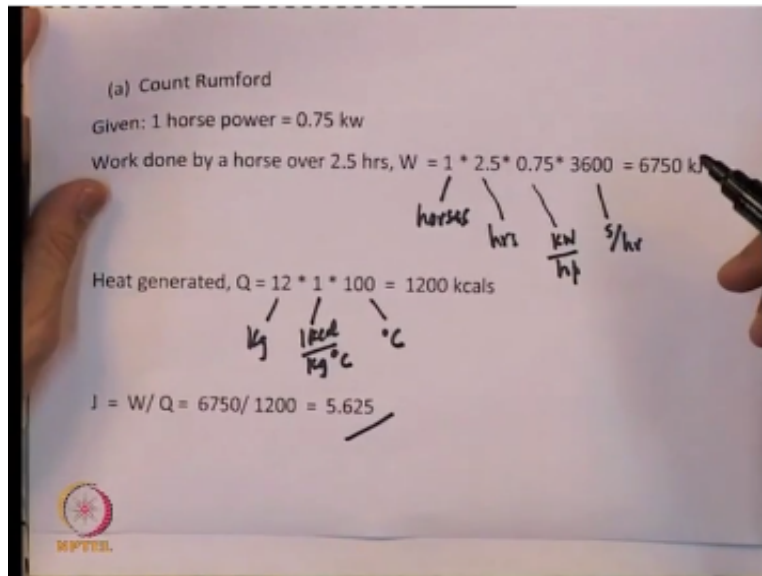 (a) Count Rumford
Given: 1 horse power = 0.75 kw
Work done by a horse over 2.5 hrs, W = 1 * 2.5* 0.75* 3600 = 6750 kJ
horses hrs kW/hp s/hr
Heat generated, Q = 12 * 1 * 100 = 1200 kcals
kg 1kcal/kg°C °C
J = W/ Q = 6750/ 1200 = 5.625
NPTEL